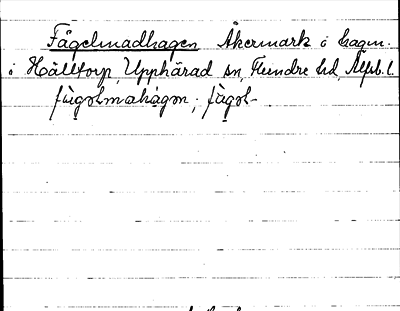 Fågelmadhagen Åkermark i hagm.
i Hälltorp, Upphärad sn, Flundre hd, Älfsb. l.
fùgəlmahagən; fùgəl-